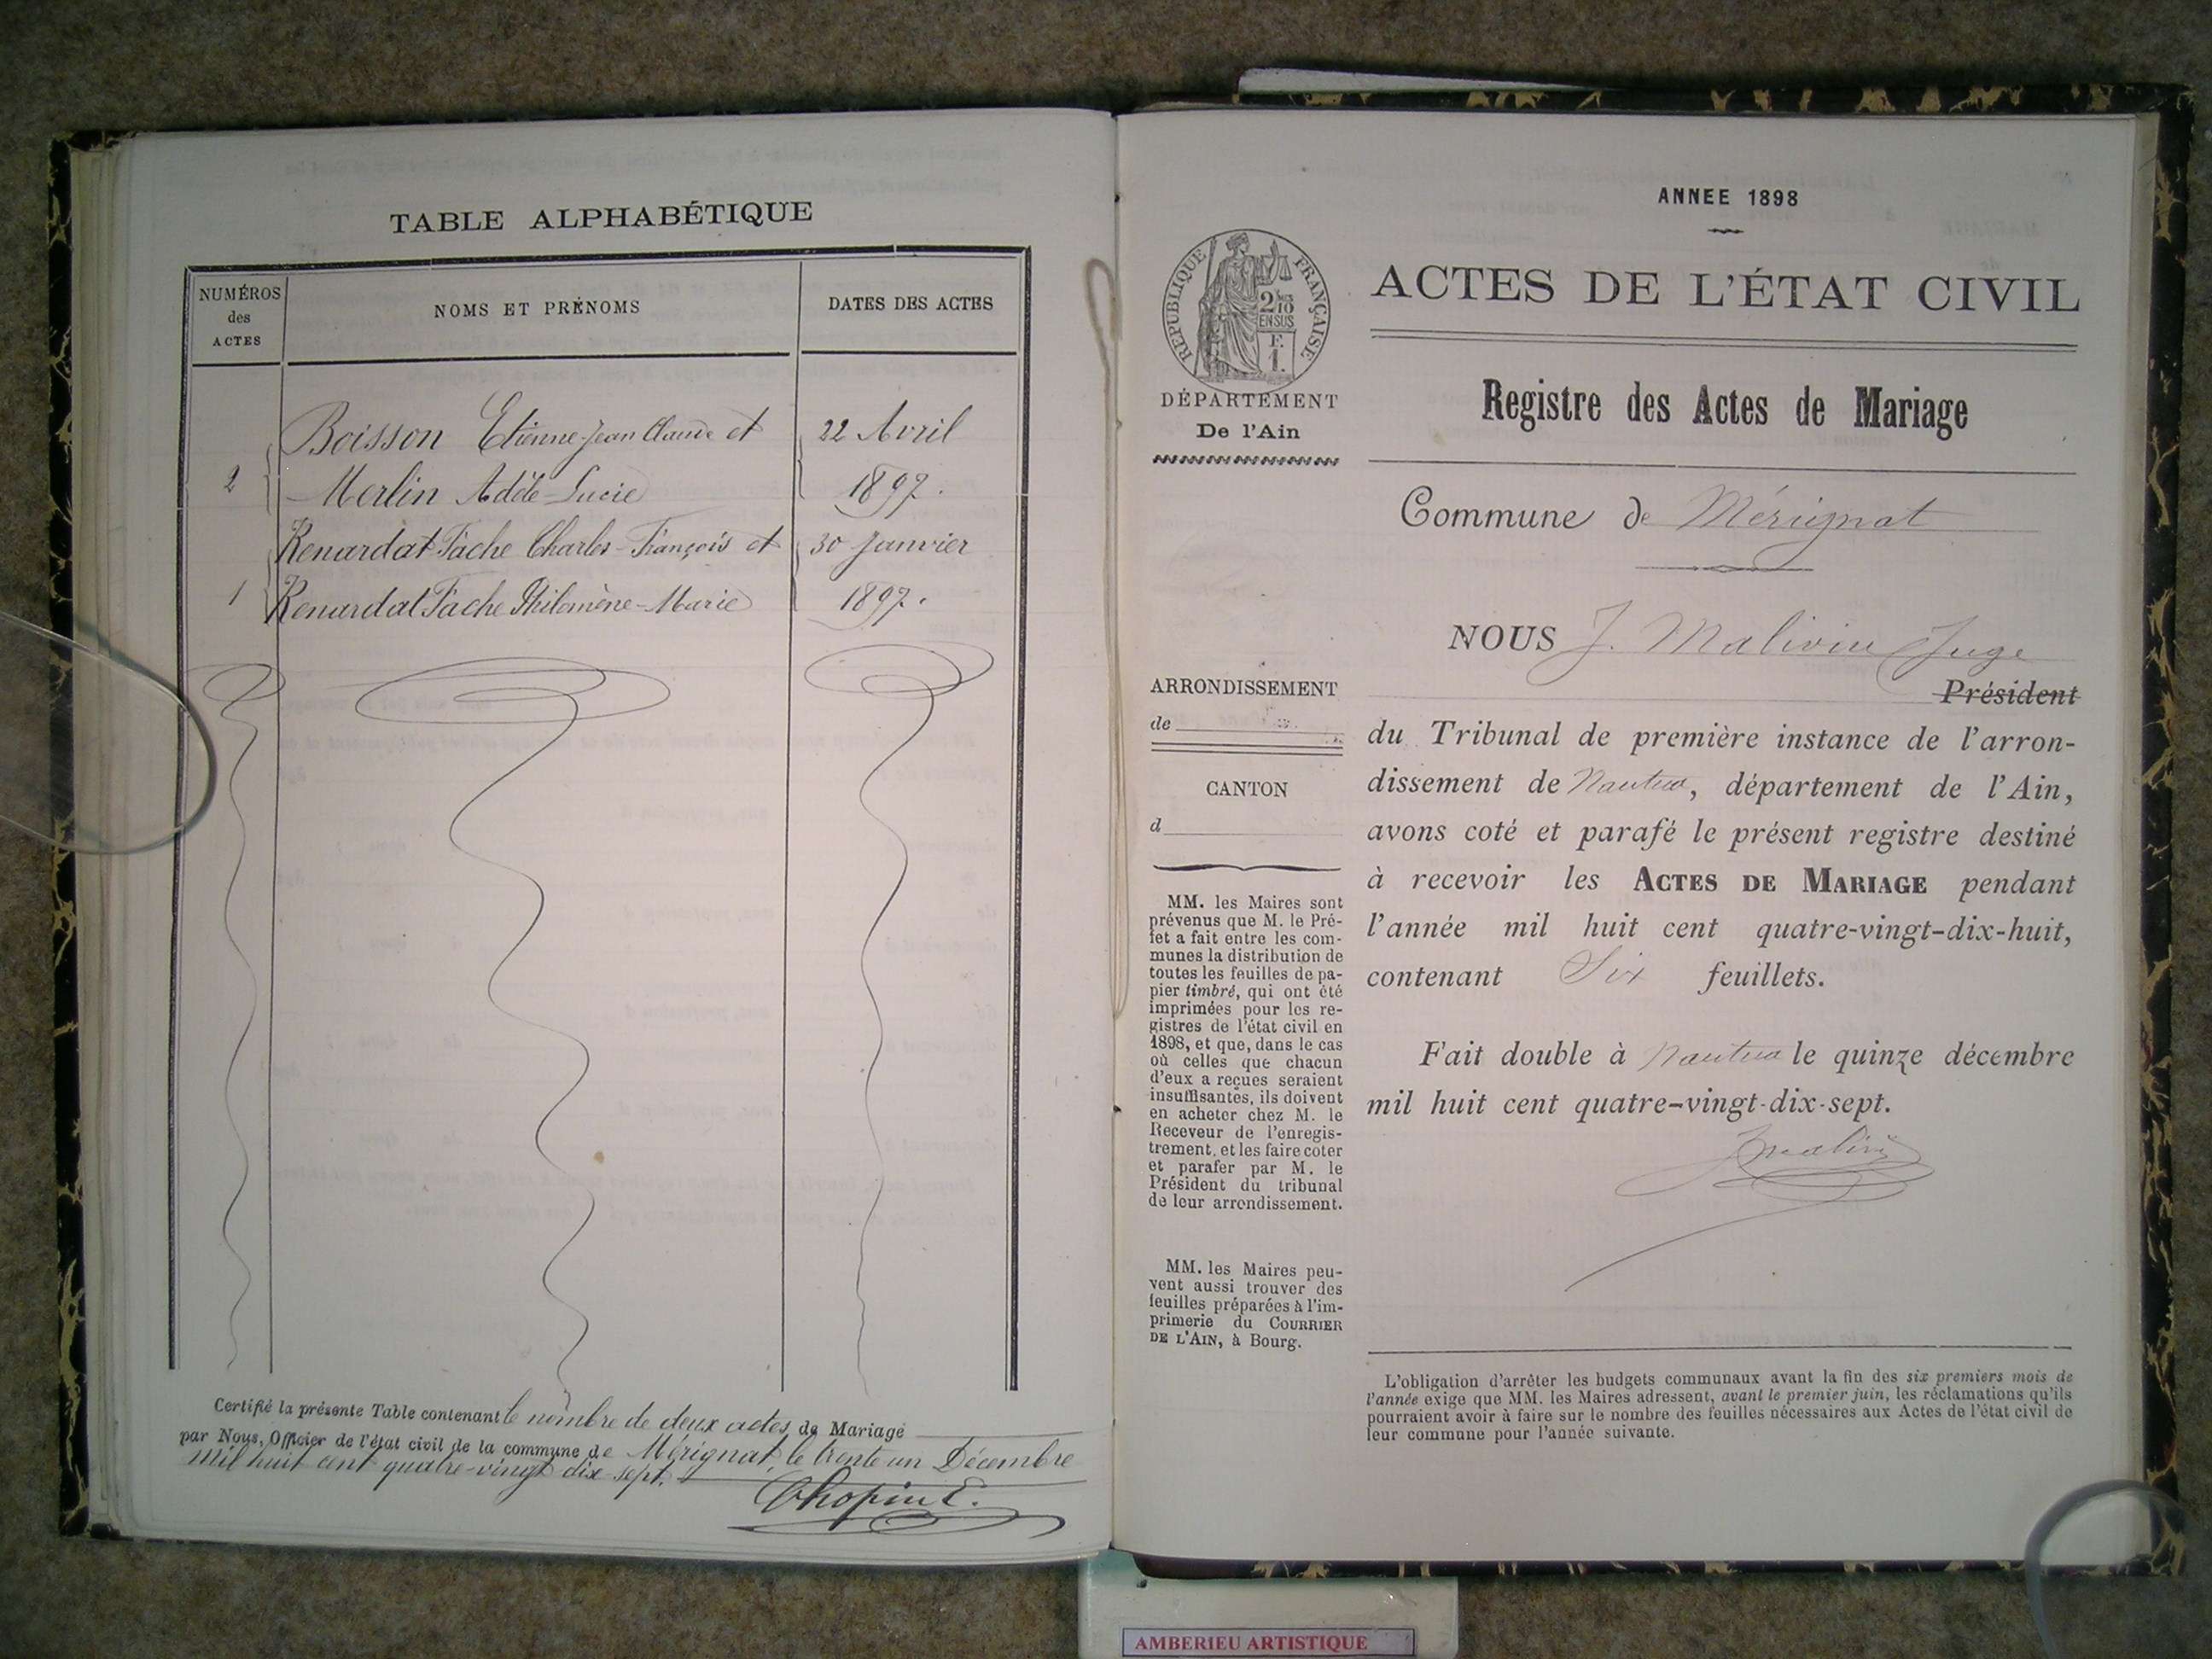 TABLE ALPHABÉTIQUE
NUMÉROS
des
ACTES
NOMS ET PRÉNOMS
DATES DES ACTES
Boisson Etienne-Jean Claude et
22 Avril
2
Merlin Adèle-Lucie
1897.
Renardat Fache Charles-François et
30 Janvier
1
Renardat Fache Philomène-Marie
1897.
Certifié la présente Table contenant le nombre de deux actes de Mariage
par Nous, Officier de l'état civil de la commune de Mérignat, le trente un Décembre
mil huit cent quatre-vingt dix sept.
Chopin E.
ANNEE 1898
RÉPUBLIQUE FRANÇAISE
2/10
EN SUS
F.
1.
DÉPARTEMENT
De l'Ain
ACTES DE L'ÉTAT CIVIL
Registre des Actes de Mariage
Commune de Mérignat
ARRONDISSEMENT
de
CANTON
d
MM. les Maires sont
prévenus que M. le Pré-
fet a fait entre les com-
munes la distribution de
toutes les feuilles de pa-
pier timbré, qui ont été
imprimées pour les re-
gistres de l'état civil en
1898, et que, dans le cas
où celles que chacun
d'eux a reçues seraient
insuffisantes, ils doivent
en acheter chez M. le
Receveur de l'enregis-
trement, et les faire coter
et parafer par M. le
Président du tribunal
de leur arrondissement.
MM. les Maires peu-
vent aussi trouver des
feuilles préparées à l'im-
primerie du COURRIER
DE L'AIN, à Bourg.
NOUS J. Malivin Juge
Président
du Tribunal de première instance de l'arron-
dissement de Nantua, département de l'Ain,
avons coté et parafé le présent registre destiné
à recevoir les ACTES DE MARIAGE pendant
l'année mil huit cent quatre-vingt-dix-huit,
contenant Six feuillets.
Fait double à Nantua le quinze décembre
mil huit cent quatre-vingt-dix-sept.
JMalivin
L'obligation d'arrêter les budgets communaux avant la fin des six premiers mois de
l'année exige que MM. les Maires adressent, avant le premier juin, les réclamations qu'ils
pourraient avoir à faire sur le nombre des feuilles nécessaires aux Actes de l'état civil de
leur commune pour l'année suivante.
AMBERIEU ARTISTIQUE